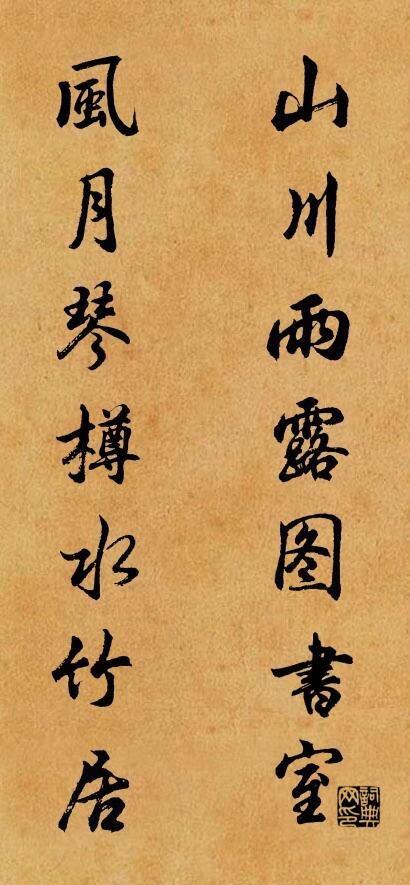 山川雨露图書室
風月琴樽水竹居
詞典网印